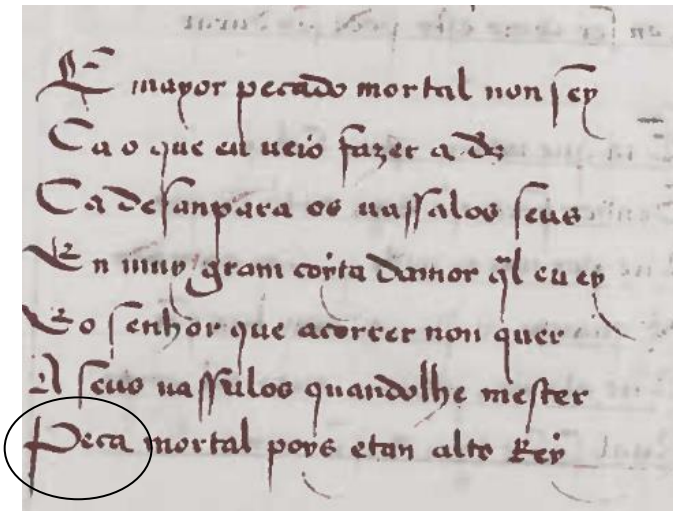 E mayor pecado mortal non sey
Ca o que eu veio fazer a ds
Ca desanpara os uassalos seus
En muy gram coyta damor ql eu ey
Eo senhor que acorrer non quer
A seus uassalos quandolhe mester
Peca mortal poys etan alto Rey